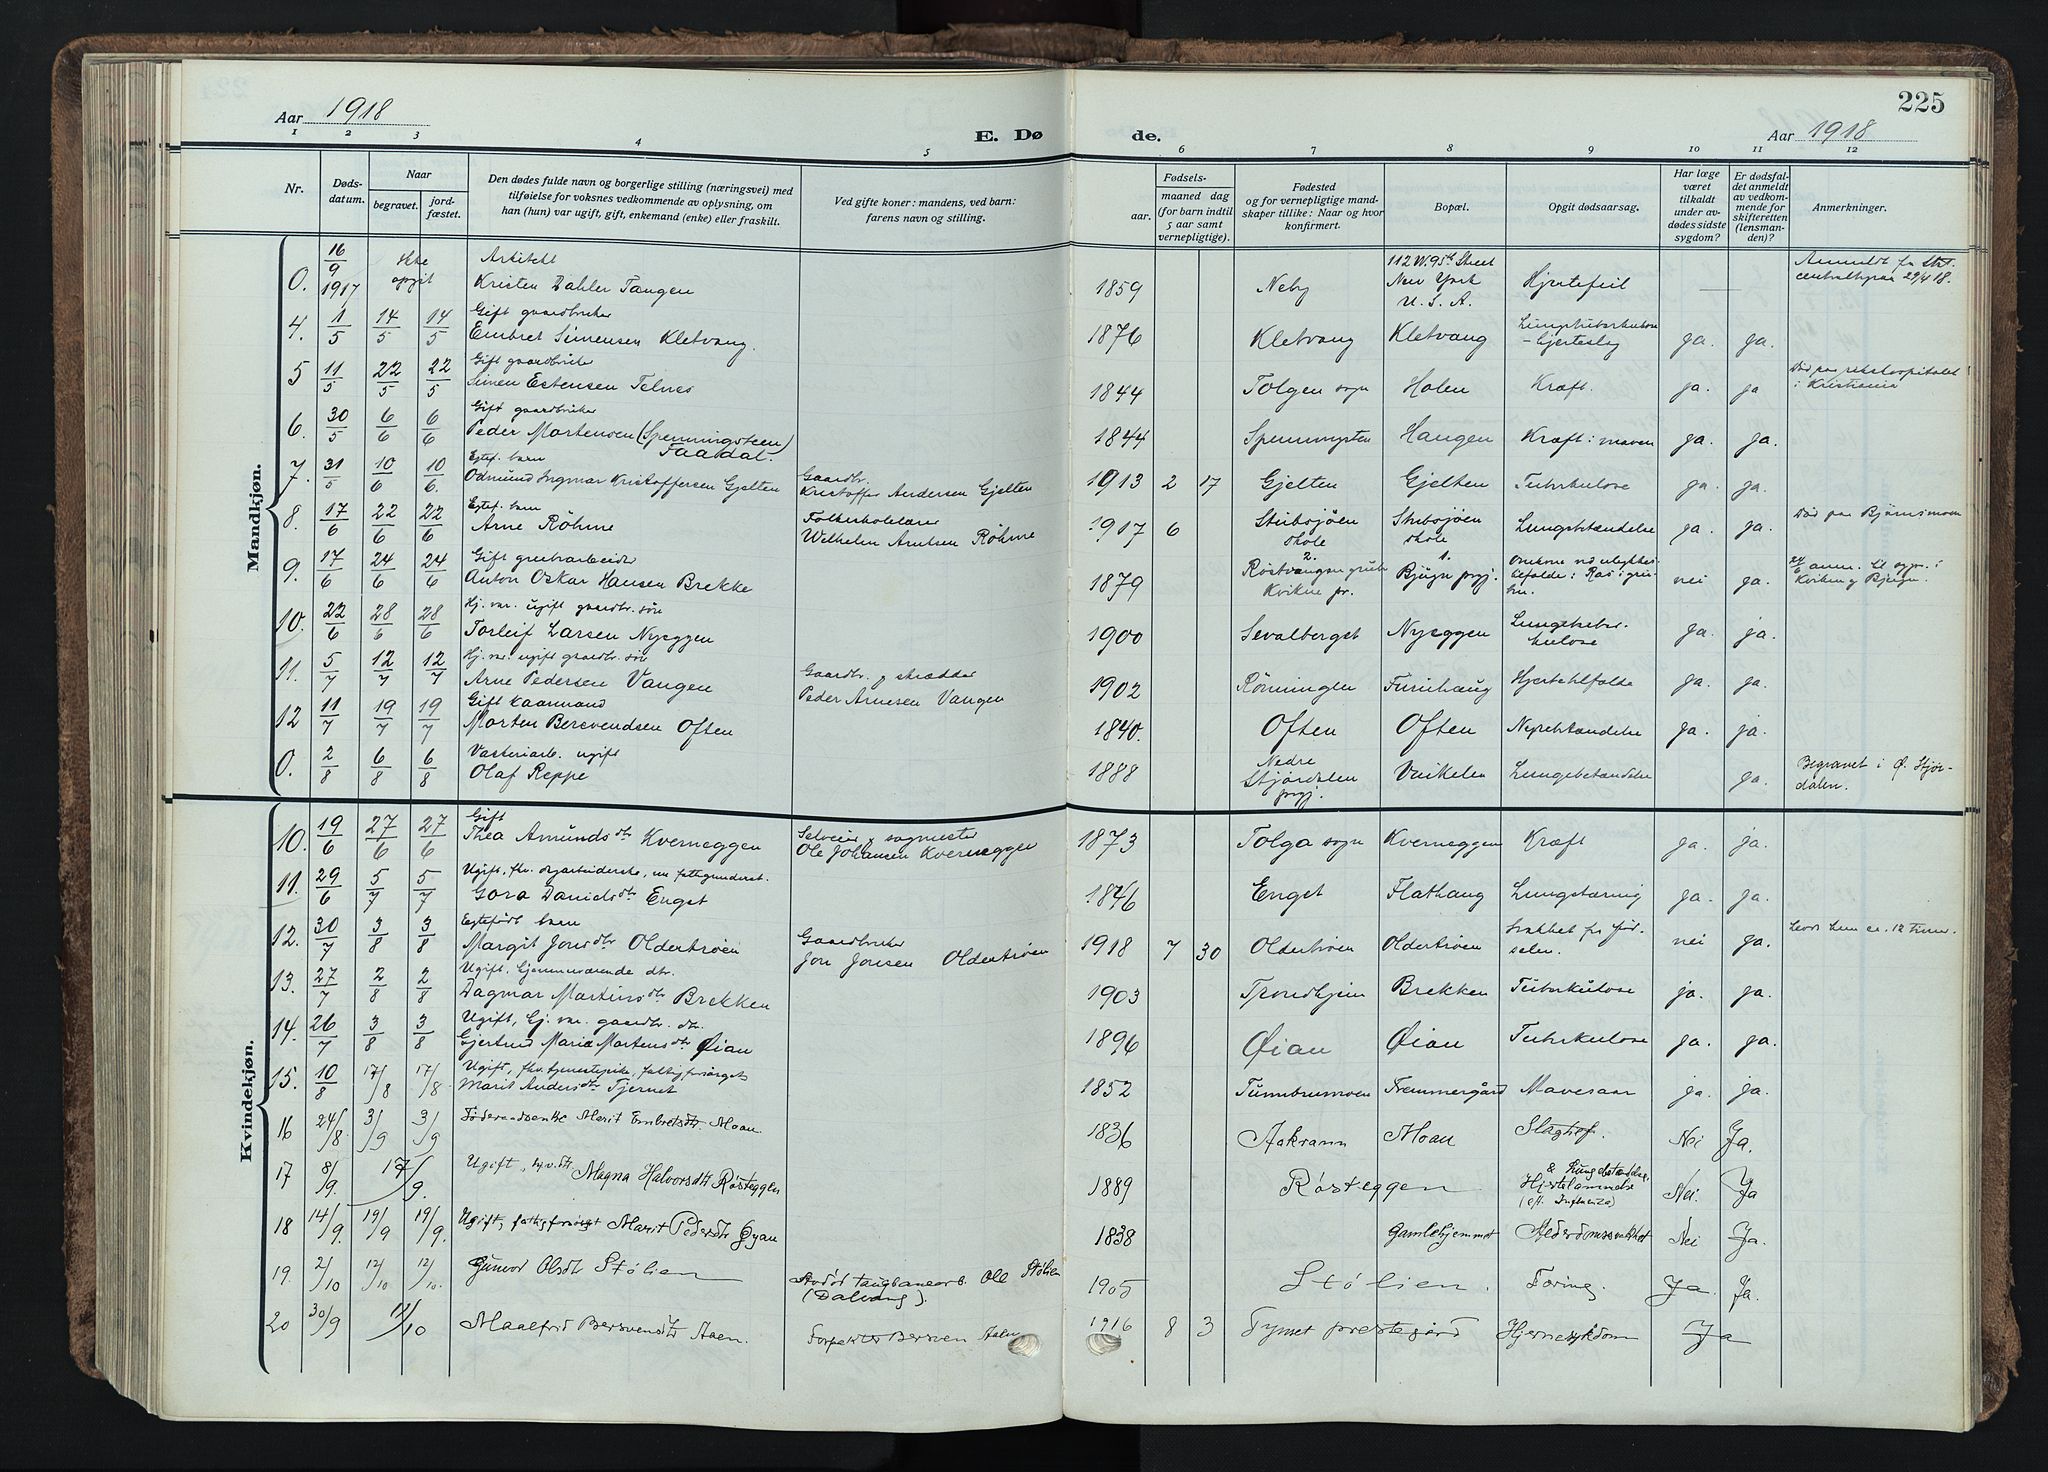 225
Aar 1918
E. Dø
de.
Aar 1918
1 2 3 4 5 6 7 8 9 10 11 12
Nr.
Døds-
datum.
Naar
begravet.
jord-
fæstet.
Den dødes fulde navn og borgerlige stilling (næringsvei) med
tilføielse for voksnes vedkommende av oplysning, om
han (hun) var ugift, gift, enkemand (enke) eller fraskilt.
Ved gifte koner: mandens, ved barn:
farens navn og stilling.
Fødsels-
aar.
maaned dag
(for barn indtil
5 aar samt
vernepligtige).
Fødested
og for vernepligtige mand-
skaper tillike: Naar og hvor
konfirmert.
Bopæl.
Opgit dødsaarsag.
Har læge
været
tilkaldt
under av-
dødes sidste
sygdom?
Er dødsfal-
det anmeldt
av vedkom-
mende for
skifteretten
(lensman-
den)?
Anmerkninger.
Mandkjøn.
0. 16/9 1917 Ikke opgit Arkitekt
Kristen Dahler Tangen 1859 Neby 112 W. 95th Street
New York
U. S. A. Hjertefeil
4. 1/5 14/5 14/5 Gift gaardbruker
Embret Simensen Kletvang. 1876 Kletvang Kletvang ja. ja.
5 11/5 22/5 22/5 Gift gaardbruker
Simen Estensen Telnes 1844 Tolgen sogn Holen Kræft. ja. ja Død paa rikshospitalet
i Kristiania
6. 30/5 6/6 6/6 Gift gaardbruker
Peder Mortensen (Spenningsteen)
Faadal. 1844 Haugen Kræft i maven ja. ja.
7. 31/5 10/6 10/6. Egtef. barn
Odmund Ingmar Kristoffersen Gjelten Gaardbr.
Kristoffer Andersen Gjelten 1913 2 17 Gjelten Gjelten Tuberkulose ja. ja.
8. 17/6 22/6 22/6 Egtef. barn
Arne Røhme Folkeskolelærer
Wilhelm Arntsen Røhme 1917 6 Stubsjøen
skole Stubsjøen
skole Lungebetændelse ja. ja. Død paa Bjørnsmoen
9. 17/6 24/6 24/6 Gift grubearbeider
Anton Oskar Hansen Brekke 1879 2.
Røstvangen grube
Kvikne pr. 1.
Bjugn prgj. nei ja.
10. 22/6 28/6 28/6 Hj. vær. ugift gaardbr. søn
Torleif Larsen Nyeggen 1900 Sevalberget Nyeggen Lungetuber-
kulose ja. ja.
11. 5/7 12/7 12/7 Hj. vær. ugift gaardbr. søn
Arne Pedersen Vangen Gaardbr. og skrædder
Peder Arnesen Vangen 1902 Furuhaug ja. ja.
12 11/7 19/7 19/7 Gift kaarmand
Morten Bersvendsen Often 1840. Often Often Nyrebetændelse ja. ja.
0. 2/8 6/8 6/8 ugift
Olaf Reppe 1888 Nedre
Stjørdalen
prgj. Lungebetændelse ja. Begravet i Ø. Stjør-
dalen.
Kvindekjøn.
10. 19/6 27/6 27/6 Gift
Thea Amundsdtr Kverneggen Selveier og sagmester
Ole Johansen Kverneggen 1873 Tolga sogn Kverneggen Kræft ja. ja.
11. 29/6 5/7 5/7 Ugift, fhv.
Gora Danielsdtr Enget 1846 Enget Flathaug Lungetæring ja. ja.
12. 30/7 3/8 3/8 Egtefødt barn
Margit Jonsdtr Oldertrøen Gaardbruker
Jon Jonsen Oldertrøen 1918 7 30 Oldertrøen Oldertrøen Svakhet fra fød-
selen. nei ja. Levde kun ca. 12 timer.
13. 27/7 2/8 2/8 Ugift, hjemmeværende dtr.
Dagmar Martinsdtr Brekken 1903 Trondhjem Brekken Tuberkulose ja. ja.
14. 26/7 3/8 3/8 Ugift, hj. vær. gaardbr. dtr.
Gjertrud Marie Mortensdtr Øian 1896 Øian Øian Tuberkulose ja. ja.
15. 10/8 17/8 17/8 Ugift, fhv. tjenestepike, fattigforsørget
Marit Andersdtr Tjernet 1852 Tunnbrumoen Fremmergård Mavesaar ja. ja.
16 24/8 3/9 3/9 Føderaadsenke Marit Embretsdtr. Moan 1836 Aakrann Moan Slagtilf. Nei Ja.
17 8/9. 17/9. Ugift, Magna Halvorsdtr Røsteggen 1889 Røsteggen & Lungebetændelse
Hjertelammelse
(eft. Influenza) Nei. Ja
18 14/9. 19/9 19/9. Ugift, fattigforsørget Marit Pedersdtr Øyan 1838 Gamlehjemmet Alderdomssvakhet Nei Ja.
19. 2/10 12/10 12/10. Gunvor Olsdtr Stølien Avdød taugbanearb. Ole Stølien
(Dalvang). 1905 Stølien. Tæring. Ja. Ja.
20 30/9 11/10 Maalfrid Bersvendsdtr Aaen. Forpakter Bersven Aaen 1916 8 3 Tynset prestegård Hjernesykdom Ja